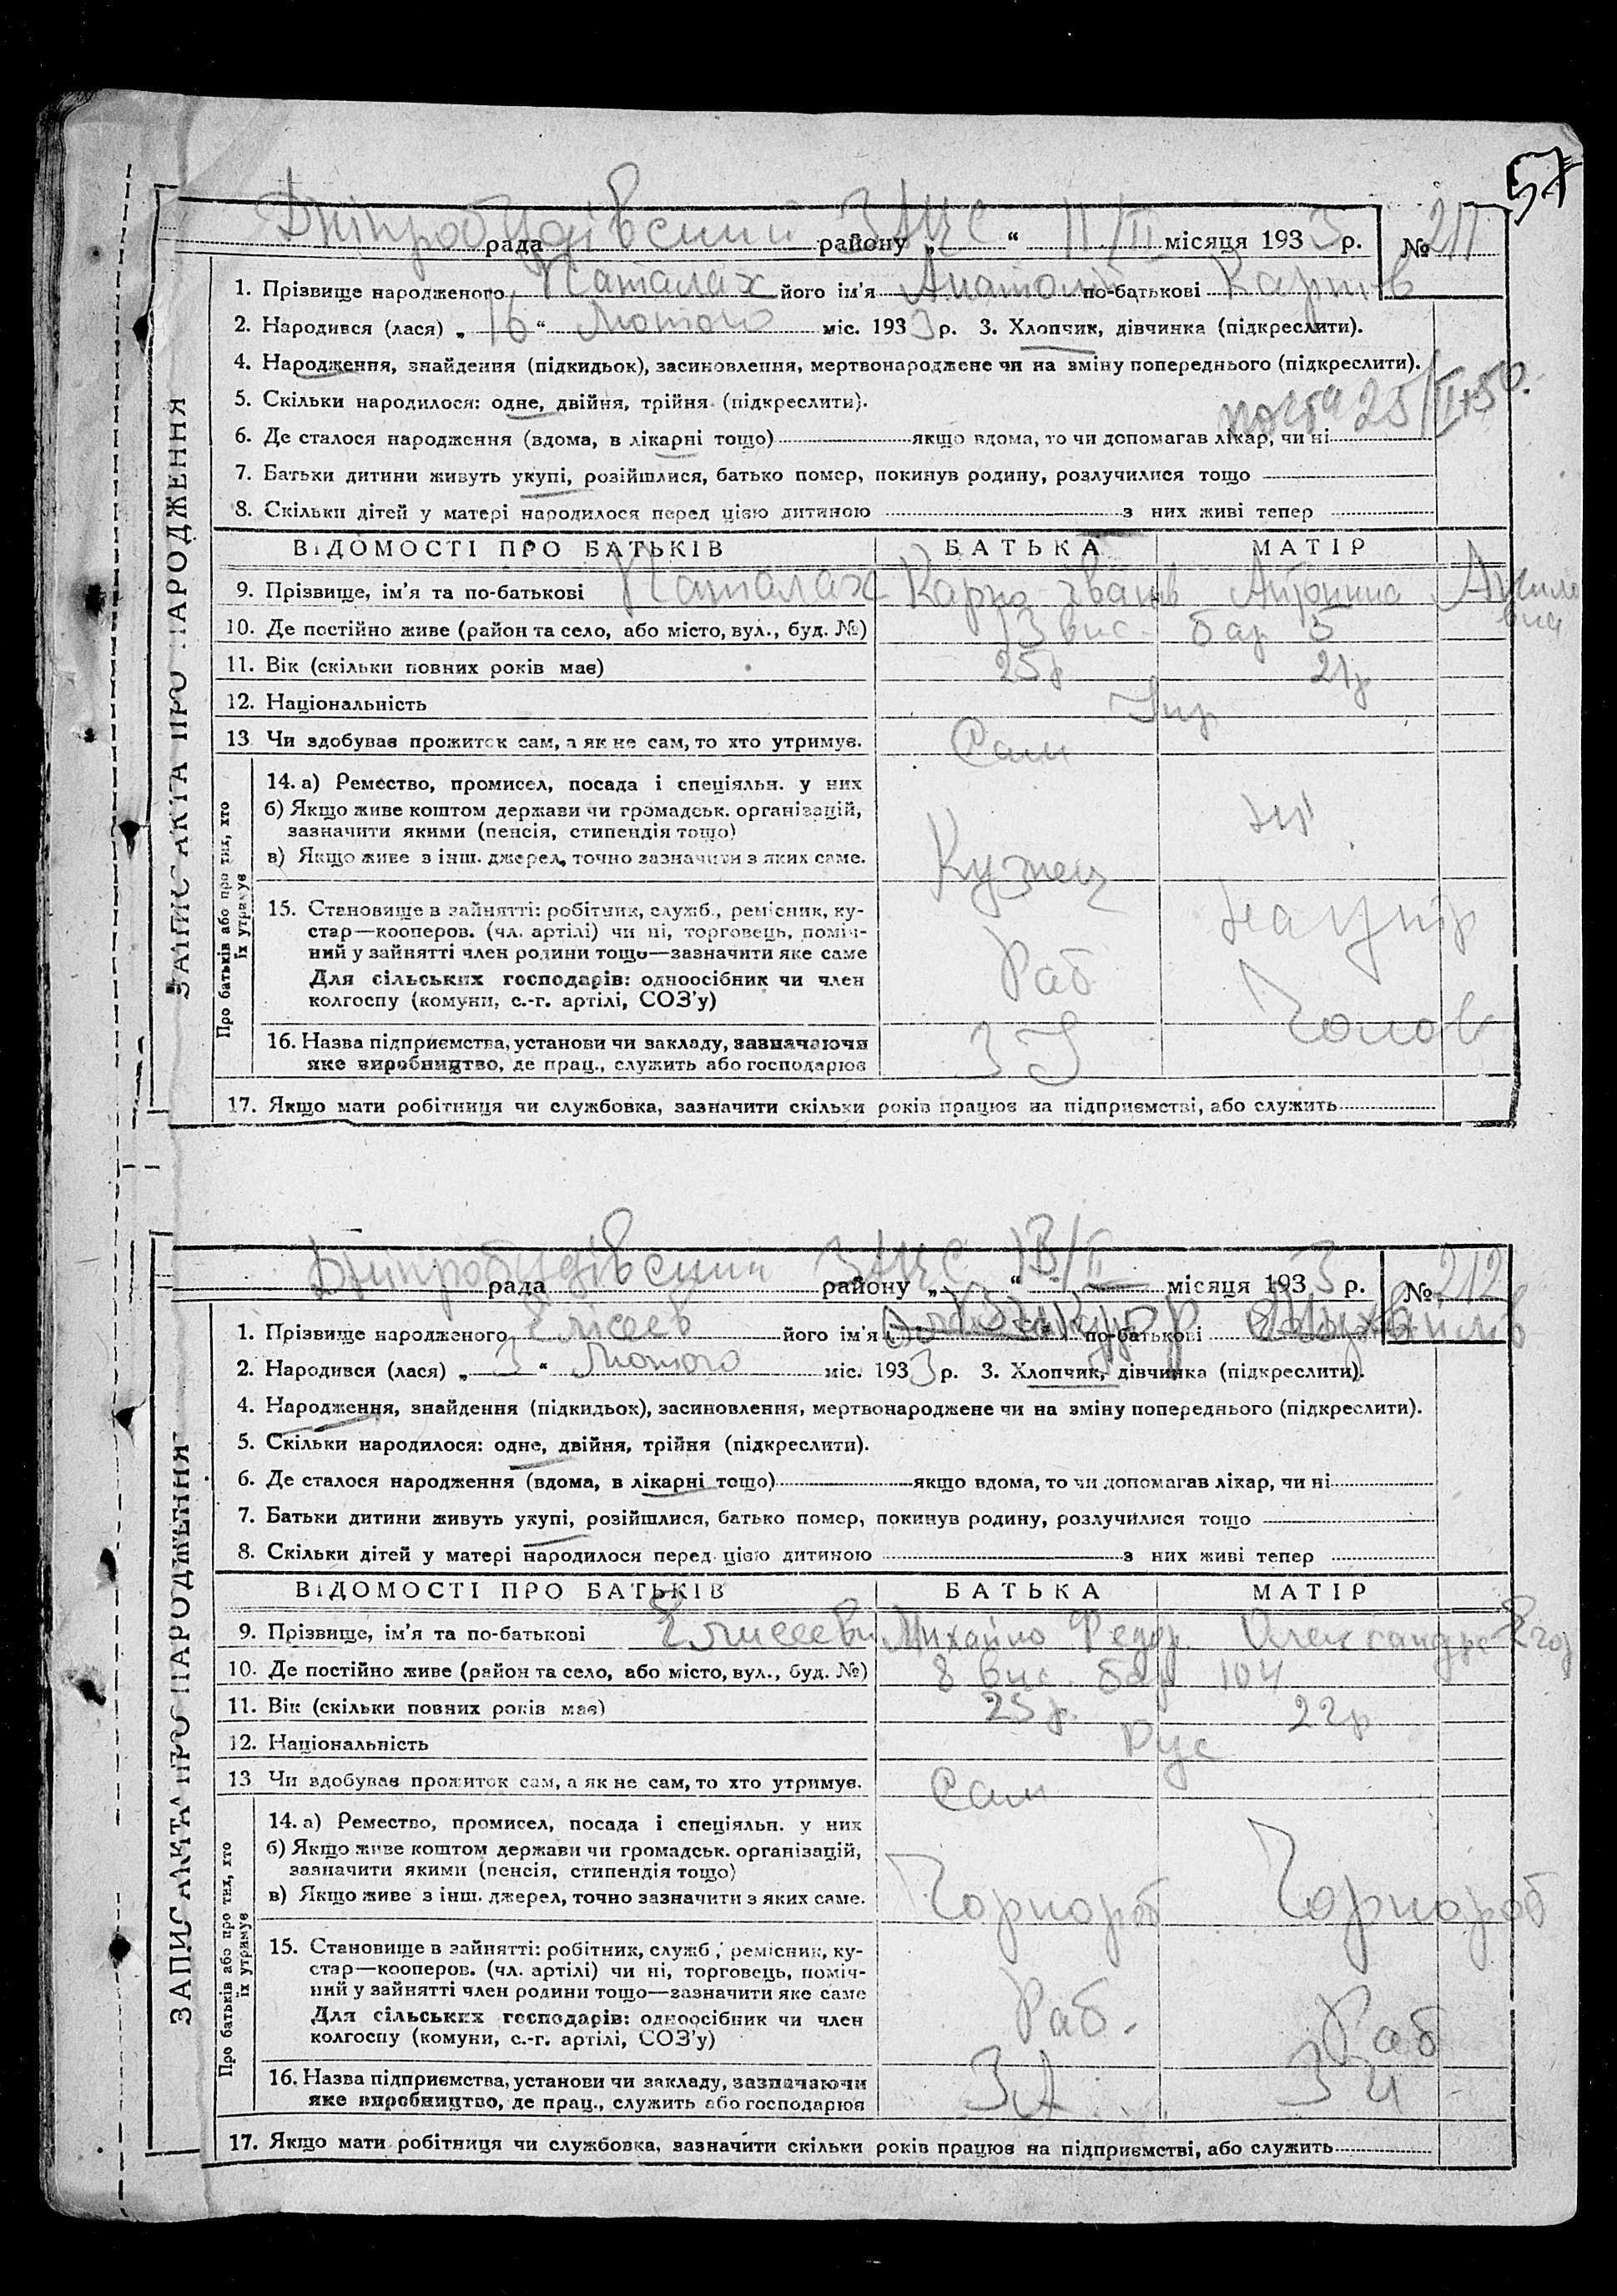 57
Дніпробудівський ЗАГС
рада району „ “ 11/II місяця 1933 р. № 211
1. Прізвище народженого Паталах його ім'я Анатолій по-батькові Карпов
2. Народився (лася) „ 16 “ Лютого міс. 1933 р. 3. Хлопчик, дівчинка (підкреслити).
4. Народження, знайдення (підкидьок), засиновлення, мертвонароджене чи на зміну попереднього (підкреслити).
5. Скільки народилося: одне, двійня, трійня (підкреслити).
6. Де сталося народження (вдома, в лікарні тощо) якщо вдома, то чи допомагав лікар, чи ні
7. Батьки дитини живуть укупі, розійшлися, батько помер, покинув родину, розлучилися тощо
8. Скільки дітей у матері народилося перед цією дитиною з них живі тепер
ЗАПИС АКТА ПРО НАРОДЖЕННЯ
ВІДОМОСТІ ПРО БАТЬКІВ БАТЬКА МАТІР
9. Прізвище, ім'я та по-батькові Паталах Карпо Іванів
10. Де постійно живе (район та село, або місто, вул., буд. №) 13 вис. бар 5
11. Вік (скільки повних років має) 25р 21р
12. Національність Укр
13 Чи здобуває прожиток сам, а як не сам, то хто утримує. Сам
Про батьків або про тих, хто їх утримує
14. а) Ремество, промисел, посада і спеціяльн. у них
б) Якщо живе коштом держави чи громадськ. організацій,
зазначити якими (пенсія, стипендія тощо)
в) Якщо живе з інш. джерел, точно зазначити з яких саме.
Кузнец
15. Становище в зайнятті: робітник, служб., ремісник, ку-
стар—кооперов. (чл. артілі) чи ні, торговець, поміч-
ний у зайнятті член родини тощо—зазначити яке саме
Для сільських господарів: одноосібник чи член
колгоспу (комуни, с.-г. артілі, СОЗ'у)
Раб
16. Назва підприємства, установи чи закладу, зазначаючи
яке виробництво, де прац., служить або господарює
17. Якщо мати робітниця чи службовка, зазначити скільки років працює на підприємстві, або служить
Дніпробудівський ЗАГС
рада району „ “ 13/II місяця 1933 р. № 212
1. Прізвище народженого Елісеев його ім'я по-батькові Михайлів
2. Народився (лася) „ 3 “ Лютого міс. 1933 р. 3. Хлопчик, дівчинка (підкреслити).
4. Народження, знайдення (підкидьок), засиновлення, мертвонароджене чи на зміну попереднього (підкреслити).
5. Скільки народилося: одне, двійня, трійня (підкреслити).
6. Де сталося народження (вдома, в лікарні тощо) якщо вдома, то чи допомагав лікар, чи ні
7. Батьки дитини живуть укупі, розійшлися, батько помер, покинув родину, розлучилися тощо
8. Скільки дітей у матері народилося перед цією дитиною з них живі тепер
ЗАПИС АКТА ПРО НАРОДЖЕННЯ
ВІДОМОСТІ ПРО БАТЬКІВ БАТЬКА МАТІР
9. Прізвище, ім'я та по-батькові Елисеевы Михайло Федор. Олександра Егор
10. Де постійно живе (район та село, або місто, вул., буд. №) 8 вис. бар 104
11. Вік (скільки повних років має) 25р. 22р
12. Національність Рус
13 Чи здобуває прожиток сам, а як не сам, то хто утримує. Сам
Про батьків або про тих, хто їх утримує
14. а) Ремество, промисел, посада і спеціяльн. у них
б) Якщо живе коштом держави чи громадськ. організацій,
зазначити якими (пенсія, стипендія тощо)
в) Якщо живе з інш. джерел, точно зазначити з яких саме.
Чорнороб Чорнороб
15. Становище в зайнятті: робітник, служб., ремісник, ку-
стар—кооперов. (чл. артілі) чи ні, торговець, поміч-
ний у зайнятті член родини тощо—зазначити яке саме
Для сільських господарів: одноосібник чи член
колгоспу (комуни, с.-г. артілі, СОЗ'у)
Раб. Раб
16. Назва підприємства, установи чи закладу, зазначаючи
яке виробництво, де прац., служить або господарює
17. Якщо мати робітниця чи службовка, зазначити скільки років працює на підприємстві, або служить